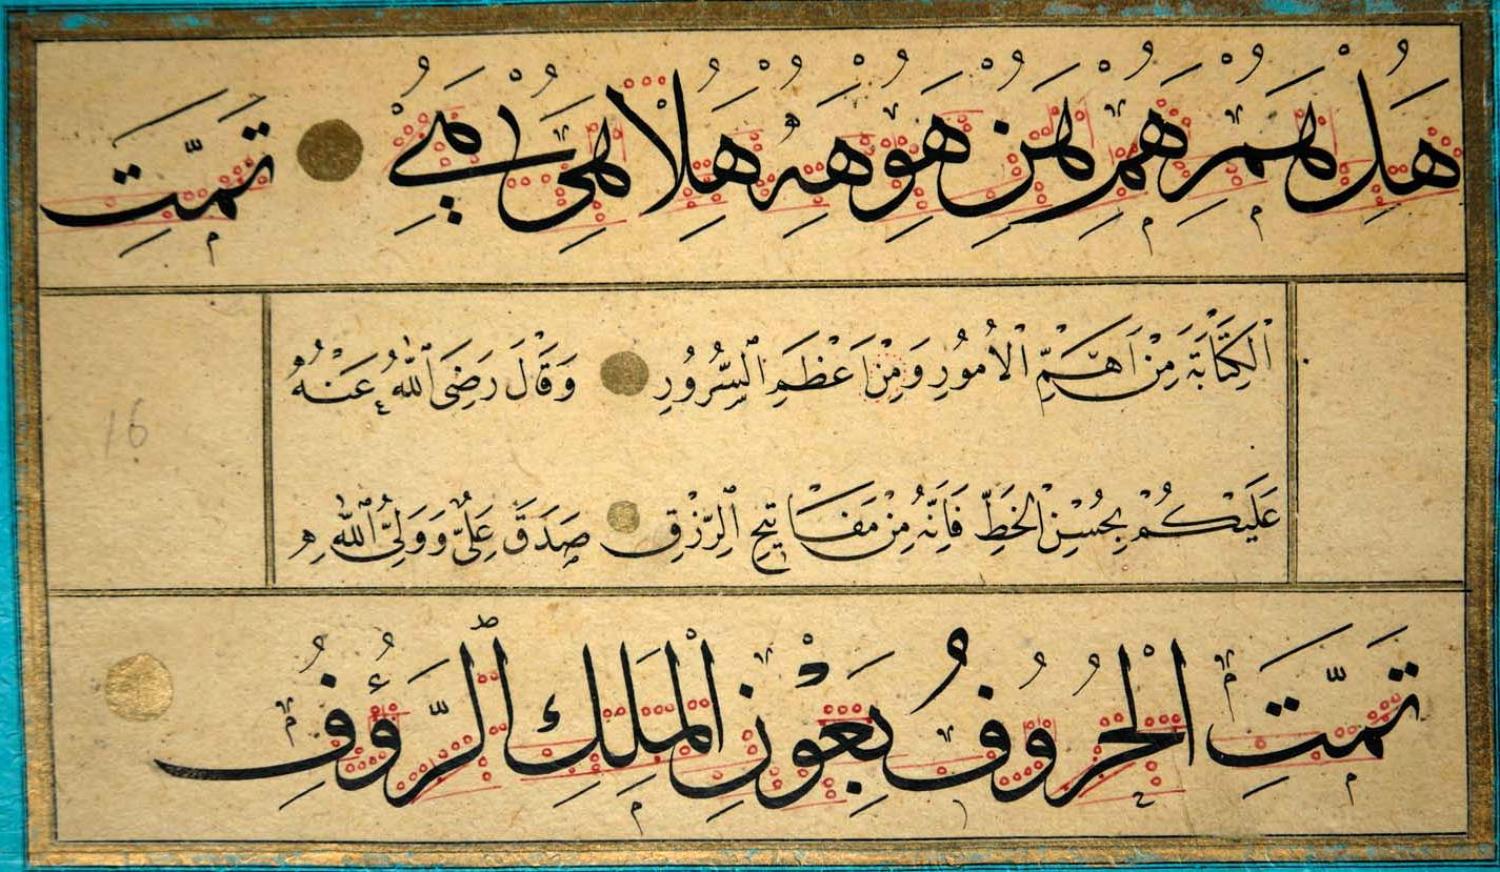 هَلْ هَمْ هُمْ هُنْ هَوْ هُهْ هَلَا هَيْ هَيْ تَمَّتِ
الْكِتَابَةُ مِنْ اَهَمِّ الْاُمُورِ وَمِنْ اَعْظَمِ السُّرُورِ وَقَالَ رَضِىَ اللّٰهُ عَنْهُ
عَلَيْكُمْ بِحُسْنِ الْخَطِّ فَاِنَّهُ مِنْ مَفَاتِيحِ الرِّزْقِ صَدَقَ عَلِىٌّ وَوَلِىُّ اللّٰهِ
تَمَّتِ الْحُرُوفُ بِعَوْنِ الْمَلِكِ الرَّؤُفِ
16